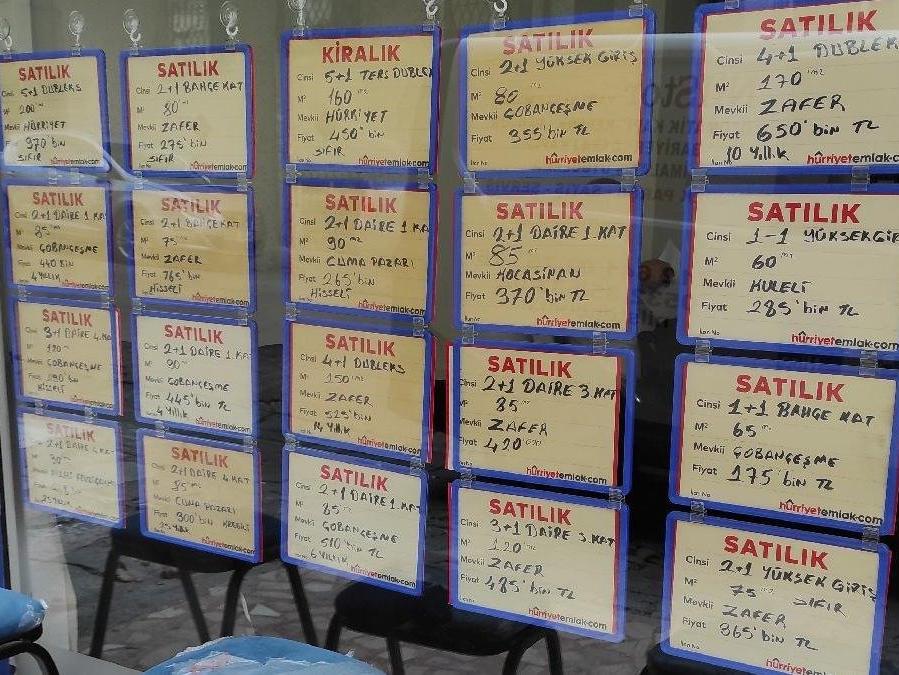 SATILIK
Cinsi 5+1 DUBLEKS
M² 200 m2
Mevkii HÜRRİYET
Fiyat 970' bin
SIFIR
SATILIK
Cinsi 2+1 BAHÇE KAT
M² 80 m2
Mevkii ZAFER
Fiyat 275' bin
SIFIR
KİRALIK
Cinsi 5+1 TERS DUBLEX
M² 160 m2
Mevkii HÜRRİYET
Fiyat 450' bin
SIFIR
hürriyetemlak.com
SATILIK
Cinsi 2+1 YÜKSEK GİRİŞ
M² 80 m2
Mevkii ÇOBANÇEŞME
Fiyat 355' bin TL
hürriyetemlak.com
SATILIK
Cinsi 4+1 DUBLEK
M² 170 m2
Mevkii ZAFER
Fiyat 650' bin TL
10 Yıllık
hürriyetemlak.com
SATILIK
Cinsi 2+1 DAİRE 1.KAT
M² 85 m2
Mevkii ÇOBANÇEŞME
Fiyat 440 BİN
4 YILLIK
hürriyetemlak.com
SATILIK
Cinsi 2+1 BAHÇE KAT
M² 75 m2
Mevkii ZAFER
Fiyat 765' bin
HİSSELİ
hürriyetemlak.com
SATILIK
Cinsi 2+1 DAİRE 1.KA
M² 90 m2
Mevkii CUMA PAZARI
Fiyat 265' bin
HİSSELİ
hürriyetemlak.com
SATILIK
Cinsi 2+1 DAİRE 1.KAT
M² 85 m2
Mevkii KOCASİNAN
Fiyat 370' bin TL
hürriyetemlak.com
SATILIK
Cinsi 1-1 YÜKSEKGİR
M² 60 m2
Mevkii KULELİ
Fiyat 285' bin TL
İlan No
hürriyetemlak.com
SATILIK
3+1 DAİRE 4.KA
M² 120 m2
ÇOBANÇEŞME
bin
HİSSELİ
hürriyetemlak.com
SATILIK
Cinsi 2+1 DAİRE 1.KA
M² 90 m2
Mevkii ÇOBANÇEŞME
Fiyat 445' bin TL
4 Yıllık
hürriyetemlak.com
SATILIK
Cinsi 4+1 DUBLEKS
M² 150 m2
Mevkii ZAFER
Fiyat 525' bin
14 YILLIK
hürriyetemlak.com
SATILIK
Cinsi 2+1 DAİRE 3.KAT
M² 85 m2
Mevkii ZAFER
Fiyat
hürriyetemlak.com
SATILIK
Cinsi 1+1 BAHÇE KAT
M² 65 m2
Mevkii ÇOBANÇEŞME
Fiyat 175' bin TL
İlan No
hürriyetemlak.com
SATILIK
2+1 DAİRE
M²
hürriyetemlak.com
SATILIK
Cinsi 2+1 DAİRE 4.KAT
M² 85 m2
Mevkii CUMA PAZARI
Fiyat 300' bin
hürriyetemlak.com
SATILIK
Cinsi 2+1 DAİRE 1.KAT
M² 85 m2
Mevkii ÇOBANÇEŞME
Fiyat 510' bin TL
6 YILLIK
hürriyetemlak.com
SATILIK
Cinsi 3+1 DAİRE 3.KAT
M² 120 m2
Mevkii ZAFER
Fiyat 485' bin TL
hürriyetemlak.com
SATILIK
Cinsi 2+1 YÜKSEK GİRİŞ
M² 75 m2 SIFIR
Mevkii ZAFER
Fiyat 365' bin TL
İlan No
hürriyetemlak.com